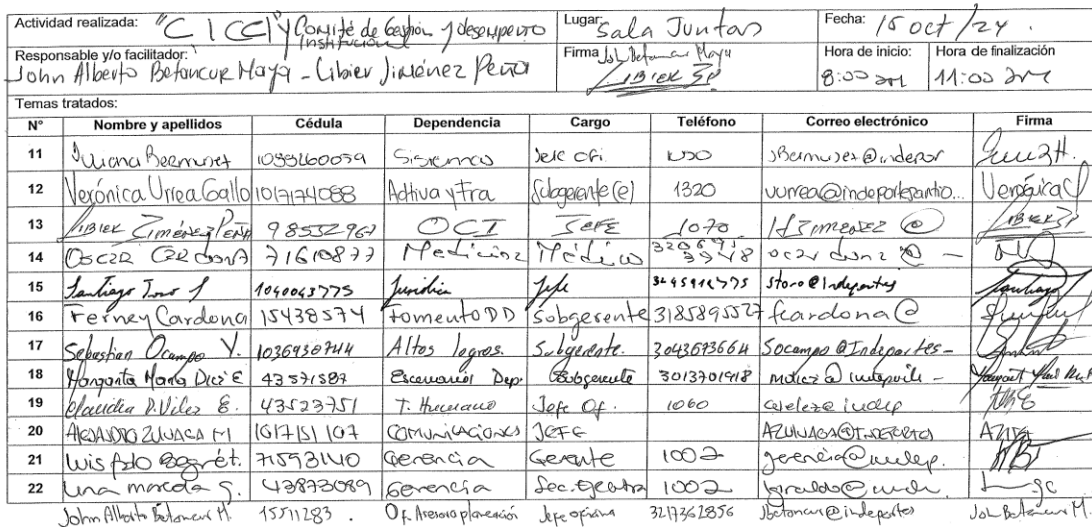 Actividad realizada: "CICCI" y Comité de Gestión y desempeño Institucional Lugar: Sala Juntas Fecha: 15 oct/24.
Responsable y/o facilitador: John Alberto Betancur Maya - Libier Jiménez Peña Firma John Betancur Maya LIBIER JP Hora de inicio: 8:00 am Hora de finalización 11:00 am
Temas tratados:
N° Nombre y apellidos Cédula Dependencia Cargo Teléfono Correo electrónico Firma
11 Juliana Bermudez Sistemas Jefe Ofi.
12 Verónica Urrea Gallo 1017174088 Adtiva y Fra Subgerente (e) 1320 vurrea@indeportesantio... Verónica
13 LIBIER JIMÉNEZ PEÑA 98552967 OCI JEFE 1070 LJimenez@ LIBIER JP
14 Oscar Cardona 71610877 Medicina Médico
15 Santiago Toro 1040043775 Juridica Jefe storo@Indeportes Santiago
16 Ferney Cardona 15438574 Fomento DD Subgerente 3185895527 fcardona@
17 Sebastian Ocampo Y. 1036930744 Altos logros. Subgerente. 3043673664 Socampo@Indeportes-
18 Margarita Maria Diez E 43571587 Escenarios Dep Subgerente 3013701918
19 Claudia P. Vélez E. 43523751 T. Humano Jefe Of. 1060 cvelez@indep
20 ALEJANDRO ZULUAGA M 1017151107 COMUNICACIONES JEFE AZULUAGA@INDEPORTES
21 Luis fdo 71593140 Gerencia Gerente 1002 gerencia@indep.
22 Lina marcela G. 43873089 Gerencia Sec. Ejecutiva 1002
John Alberto Betancur M. 15511283. Of. Asesora planeación Jefe oficina 3217362856 jbetancur@indeportes John Betancur M